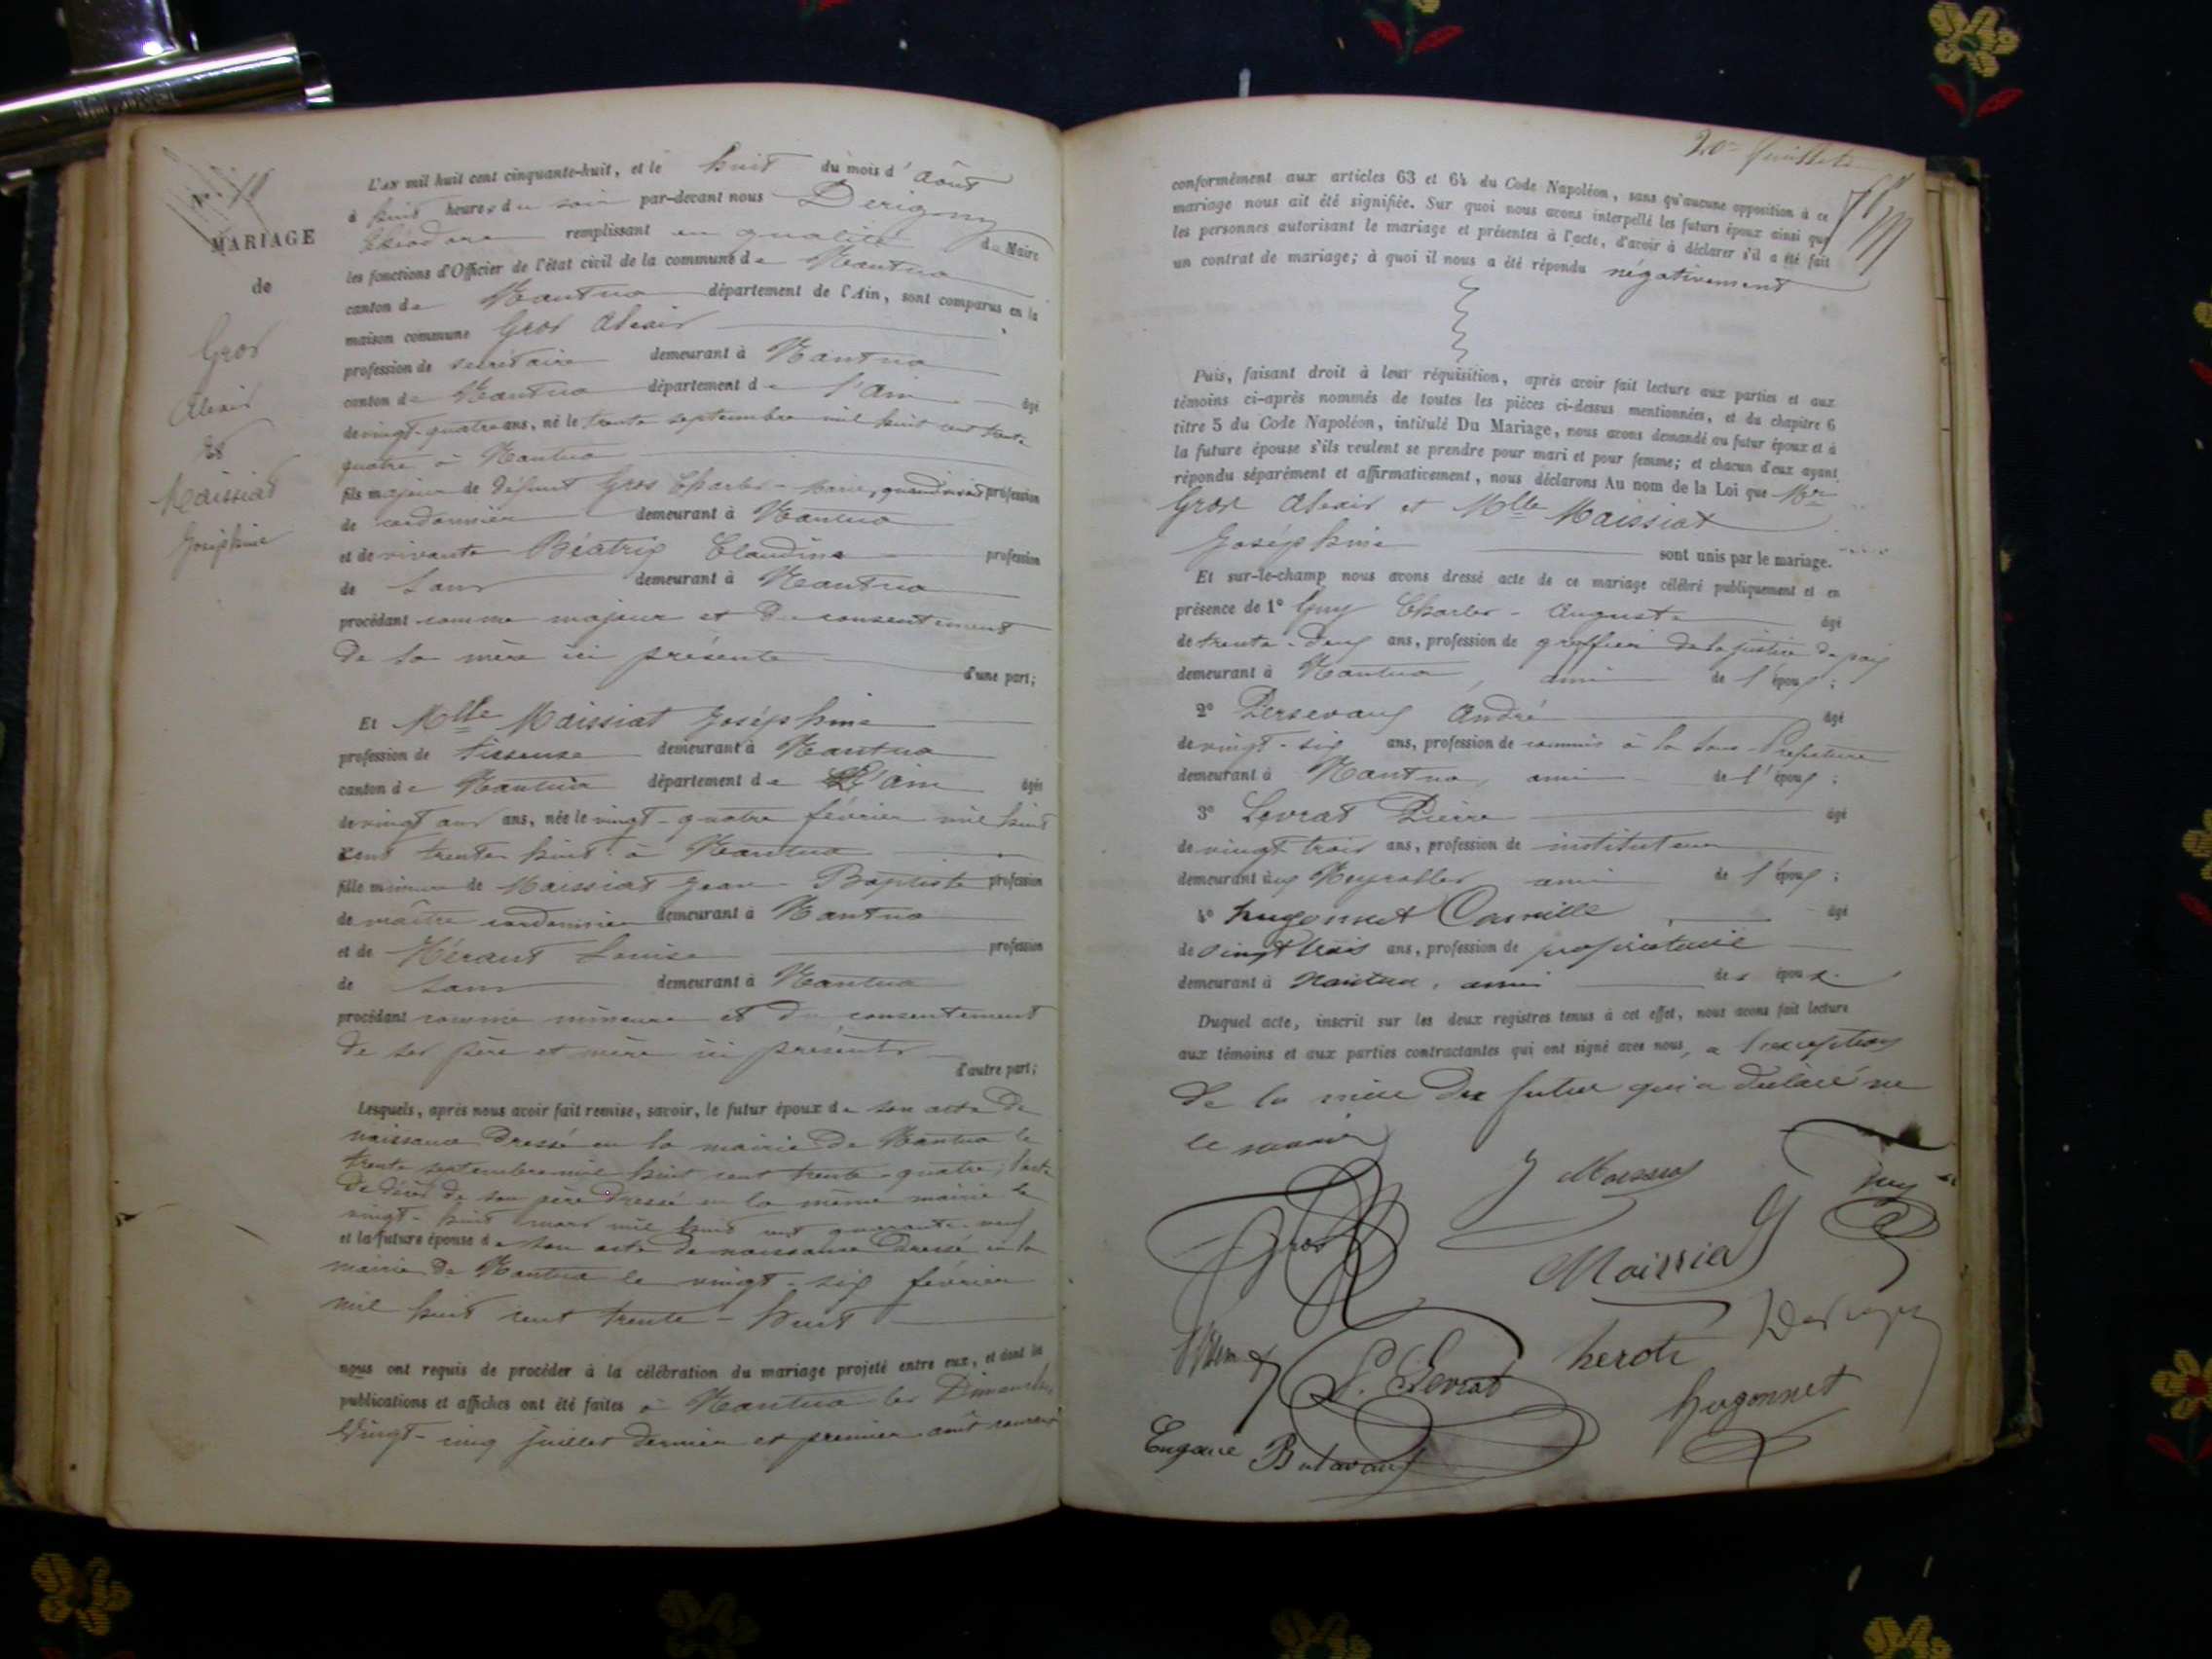 MARIAGE
de
Gros
Alexis
et
Maissiat
Joséphine
L'AN mil huit cent cinquante-huit, et le huit du mois d'Août
à huit heures du soir par-devant nous Derigny
Théodore remplissant en qualité du Maire
les fonctions d'Officier de l'état civil de la commune de Nantua
canton de Nantua département de l'Ain, sont comparus en la
maison commune Gros Alexis
profession de secrétaire demeurant à Nantua
canton de Nantua département de l'Ain âgé
de vingt-quatre ans, né le trente septembre mil huit cent trente
quatre à Nantua
fils majeur de défunt Gros Charles-Marie, quand vivait profession
de cordonnier demeurant à Nantua
et de vivante Béatrix Claudine profession
de sans demeurant à Nantua
procédant comme majeur et du consentement
de sa mère ici présente
d'une part;
Et Mlle Maissiat Joséphine
profession de tisseuse demeurant à Nantua
canton de Nantua département de L'Ain âgée
de vingt ans ans, née le vingt-quatre février mil huit
cent trente huit à Nantua
fille mineure de Maissiat Jean-Baptiste profession
de maître cordonnier demeurant à Nantua
et de Hérant Louise profession
de sans demeurant à Nantua
procédant comme mineure et du consentement
de ses père et mère ici présents
d'autre part;
Lesquels, après nous avoir fait remise, savoir, le futur époux de son acte de
naissance dressé en la mairie de Nantua le
trente septembre mil huit cent trente-quatre; l'acte
de décès de son père dressé en la même mairie le
vingt-huit mars mil huit cent quarante-neuf
et la future épouse de son acte de naissance dressé en la
mairie de Nantua le vingt-six février
mil huit cent trente-huit
nous ont requis de procéder à la célébration du mariage projeté entre eux, et dont les
publications et affiches ont été faites à Nantua les Dimanches
vingt-cinq juillet dernier et premier août courant
conformément aux articles 63 et 64 du Code Napoléon, sans qu'aucune opposition à ce
mariage nous ait été signifiée. Sur quoi nous avons interpellé les futurs époux ainsi que
les personnes autorisant le mariage et présentes à l'acte, d'avoir à déclarer s'il a été fait
un contrat de mariage; à quoi il nous a été répondu négativement
Puis, faisant droit à leur réquisition, après avoir fait lecture aux parties et aux
témoins ci-après nommés de toutes les pièces ci-dessus mentionnées, et du chapitre 6
titre 5 du Code Napoléon, intitulé Du Mariage, nous avons demandé au futur époux et à
la future épouse s'ils veulent se prendre pour mari et pour femme; et chacun d'eux ayant
répondu séparément et affirmativement, nous déclarons Au nom de la Loi que Mr
Gros Alexis et Mlle Maissiat
Joséphine sont unis par le mariage.
Et sur-le-champ nous avons dressé acte de ce mariage célébré publiquement et en
présence de 1° Guy Charles-Auguste âgé
de trente-deux ans, profession de greffier de la justice de paix
demeurant à Nantua, ami de l'époux;
2° Persevaux André âgé
de vingt-six ans, profession de commis à la Sous-Préfecture
demeurant à Nantua, ami de l'époux;
3° Levrat Pierre âgé
de vingt trois ans, profession de instituteur
demeurant aux Neyrolles ami de l'époux;
4° hugonnet Camille, âgé
de vingt trois ans, profession de propriétaire
demeurant à Nantua, ami des époux.
Duquel acte, inscrit sur les deux registres tenus à cet effet, nous avons fait lecture
aux témoins et aux parties contractantes qui ont signé avec nous, a l'exception
de la mère du futur qui a déclaré ne
le savoir
Gros
Maissiat
Guy
P. Levrat
hugonnet
Eugène